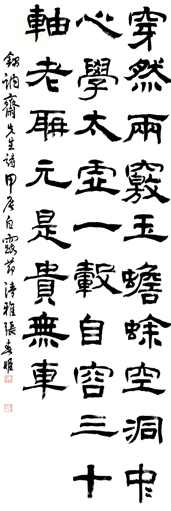 穿然兩竅玉蟾蜍空洞中
心學太虛一轂自容三十
軸老聃元是貴無車
劉詞齋先生詩甲辰白露節清雅張春姬